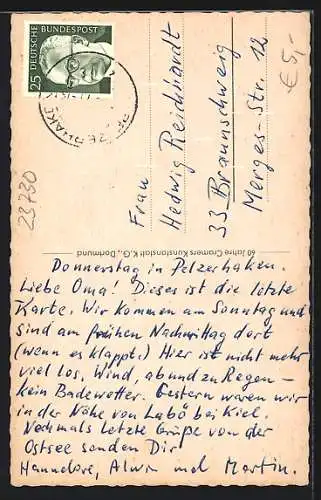 25 DEUTSCHE BUNDESPOST
PELZERHAKEN
€ 5,-
23730
Frau
Hedwig Reichhardt
33 Braunschweig
Merges-Str. 12
60 Jahre Cramers Kunstanstalt K.G., Dortmund
Donnerstag in Pelzerhaken.
Liebe Oma! Dieses ist die letzte
Karte. Wir kommen am Sonntag und
sind am frühen Nachmittag dort
(wenn es klappt!) Hier ist nicht mehr
viel los. Wind, ab und zu Regen –
kein Badewetter. Gestern waren wir
in der Nähe von Labö bei Kiel.
Nochmals letzte Grüße von der
Ostsee senden Dir
Hannelore, und Martin.